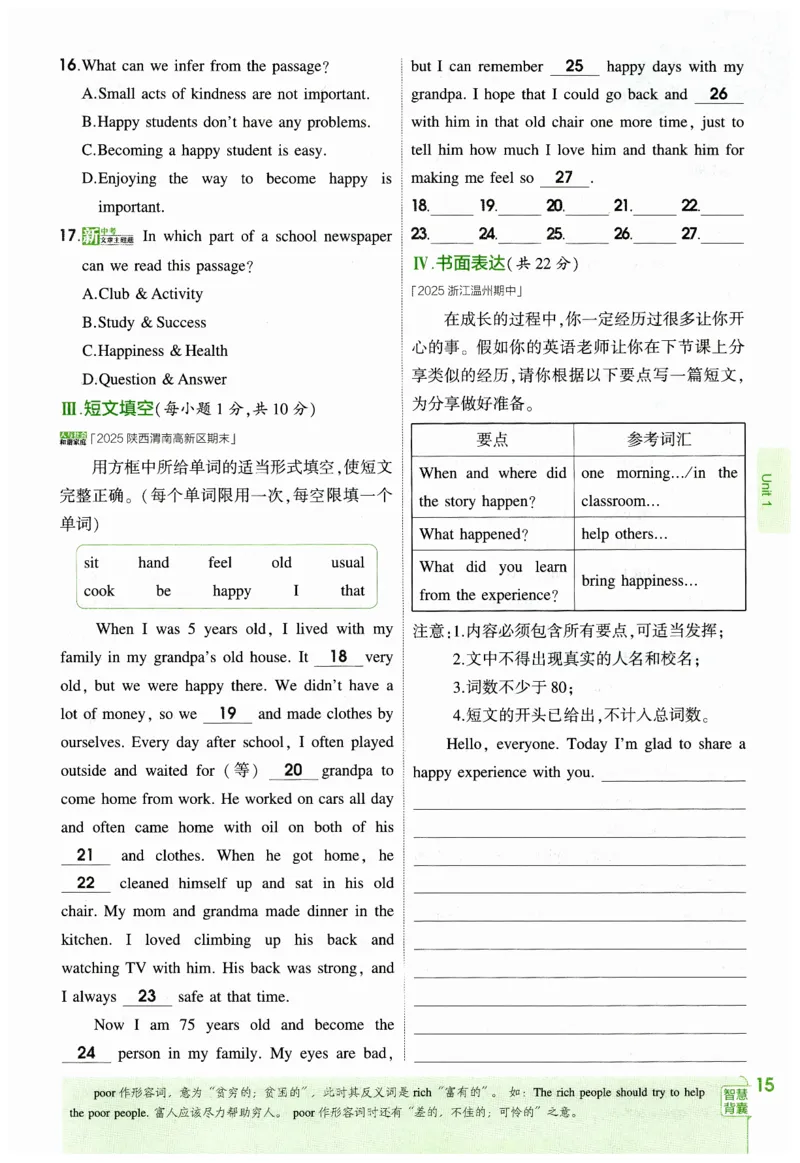 16.What can we infer from the passage?
A.Small acts of kindness are not important.
B.Happy students don't have any problems.
C.Becoming a happy student is easy.
D.Enjoying the way to become happy is
important.
17.新中考 文章主题题 In which part of a school newspaper
can we read this passage?
A.Club & Activity
B.Study & Success
C.Happiness & Health
D.Question & Answer
Ⅲ.短文填空(每小题1分,共10分)
人与社会 和谐家庭「2025陕西渭南高新区期末」
用方框中所给单词的适当形式填空,使短文
完整正确。(每个单词限用一次,每空限填一个
单词)
sit hand feel old usual
cook be happy I that
When I was 5 years old, I lived with my
family in my grandpa's old house. It 18 very
old, but we were happy there. We didn't have a
lot of money, so we 19 and made clothes by
ourselves. Every day after school, I often played
outside and waited for (等) 20 grandpa to
come home from work. He worked on cars all day
and often came home with oil on both of his
21 and clothes. When he got home, he
22 cleaned himself up and sat in his old
chair. My mom and grandma made dinner in the
kitchen. I loved climbing up his back and
watching TV with him. His back was strong, and
I always 23 safe at that time.
Now I am 75 years old and become the
24 person in my family. My eyes are bad,
but I can remember 25 happy days with my
grandpa. I hope that I could go back and 26
with him in that old chair one more time, just to
tell him how much I love him and thank him for
making me feel so 27 .
18.____ 19.____ 20.____ 21.____ 22.____
23.____ 24.____ 25.____ 26.____ 27.____
Ⅳ.书面表达(共22分)
「2025浙江温州期中」
在成长的过程中,你一定经历过很多让你开
心的事。假如你的英语老师让你在下节课上分
享类似的经历,请你根据以下要点写一篇短文,
为分享做好准备。
要点 参考词汇
When and where did the story happen? one morning.../in the classroom...
What happened? help others...
What did you learn from the experience? bring happiness...
注意:1.内容必须包含所有要点,可适当发挥;
2.文中不得出现真实的人名和校名;
3.词数不少于80;
4.短文的开头已给出,不计入总词数。
Hello, everyone. Today I'm glad to share a
happy experience with you.
Unit 1
poor作形容词,意为"贫穷的;贫困的",此时其反义词是rich"富有的"。 如:The rich people should try to help
the poor people. 富人应该尽力帮助穷人。 poor作形容词时还有"差的,不佳的;可怜的"之意。
智慧
背囊
15